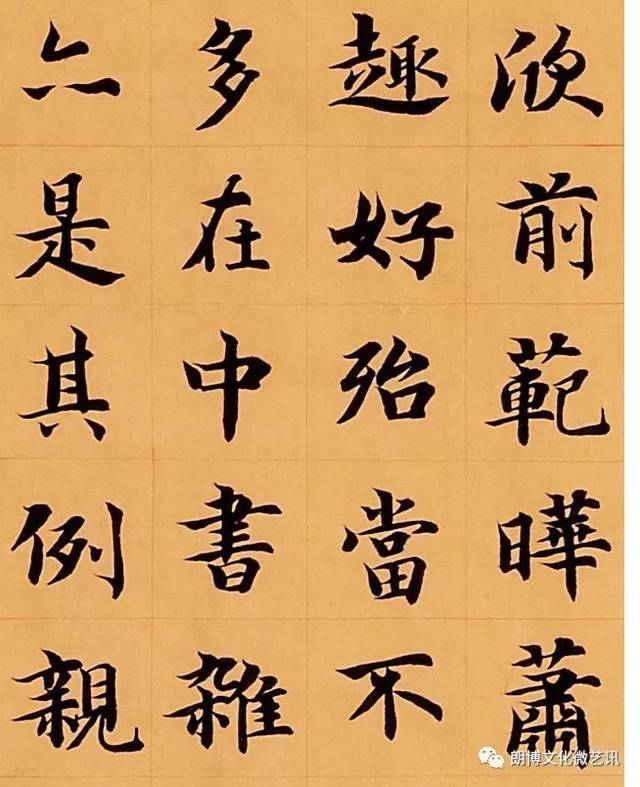 欣前範曄蕭
趣好殆當不
多在中書雜
亦是其例親
朗博文化微艺讯